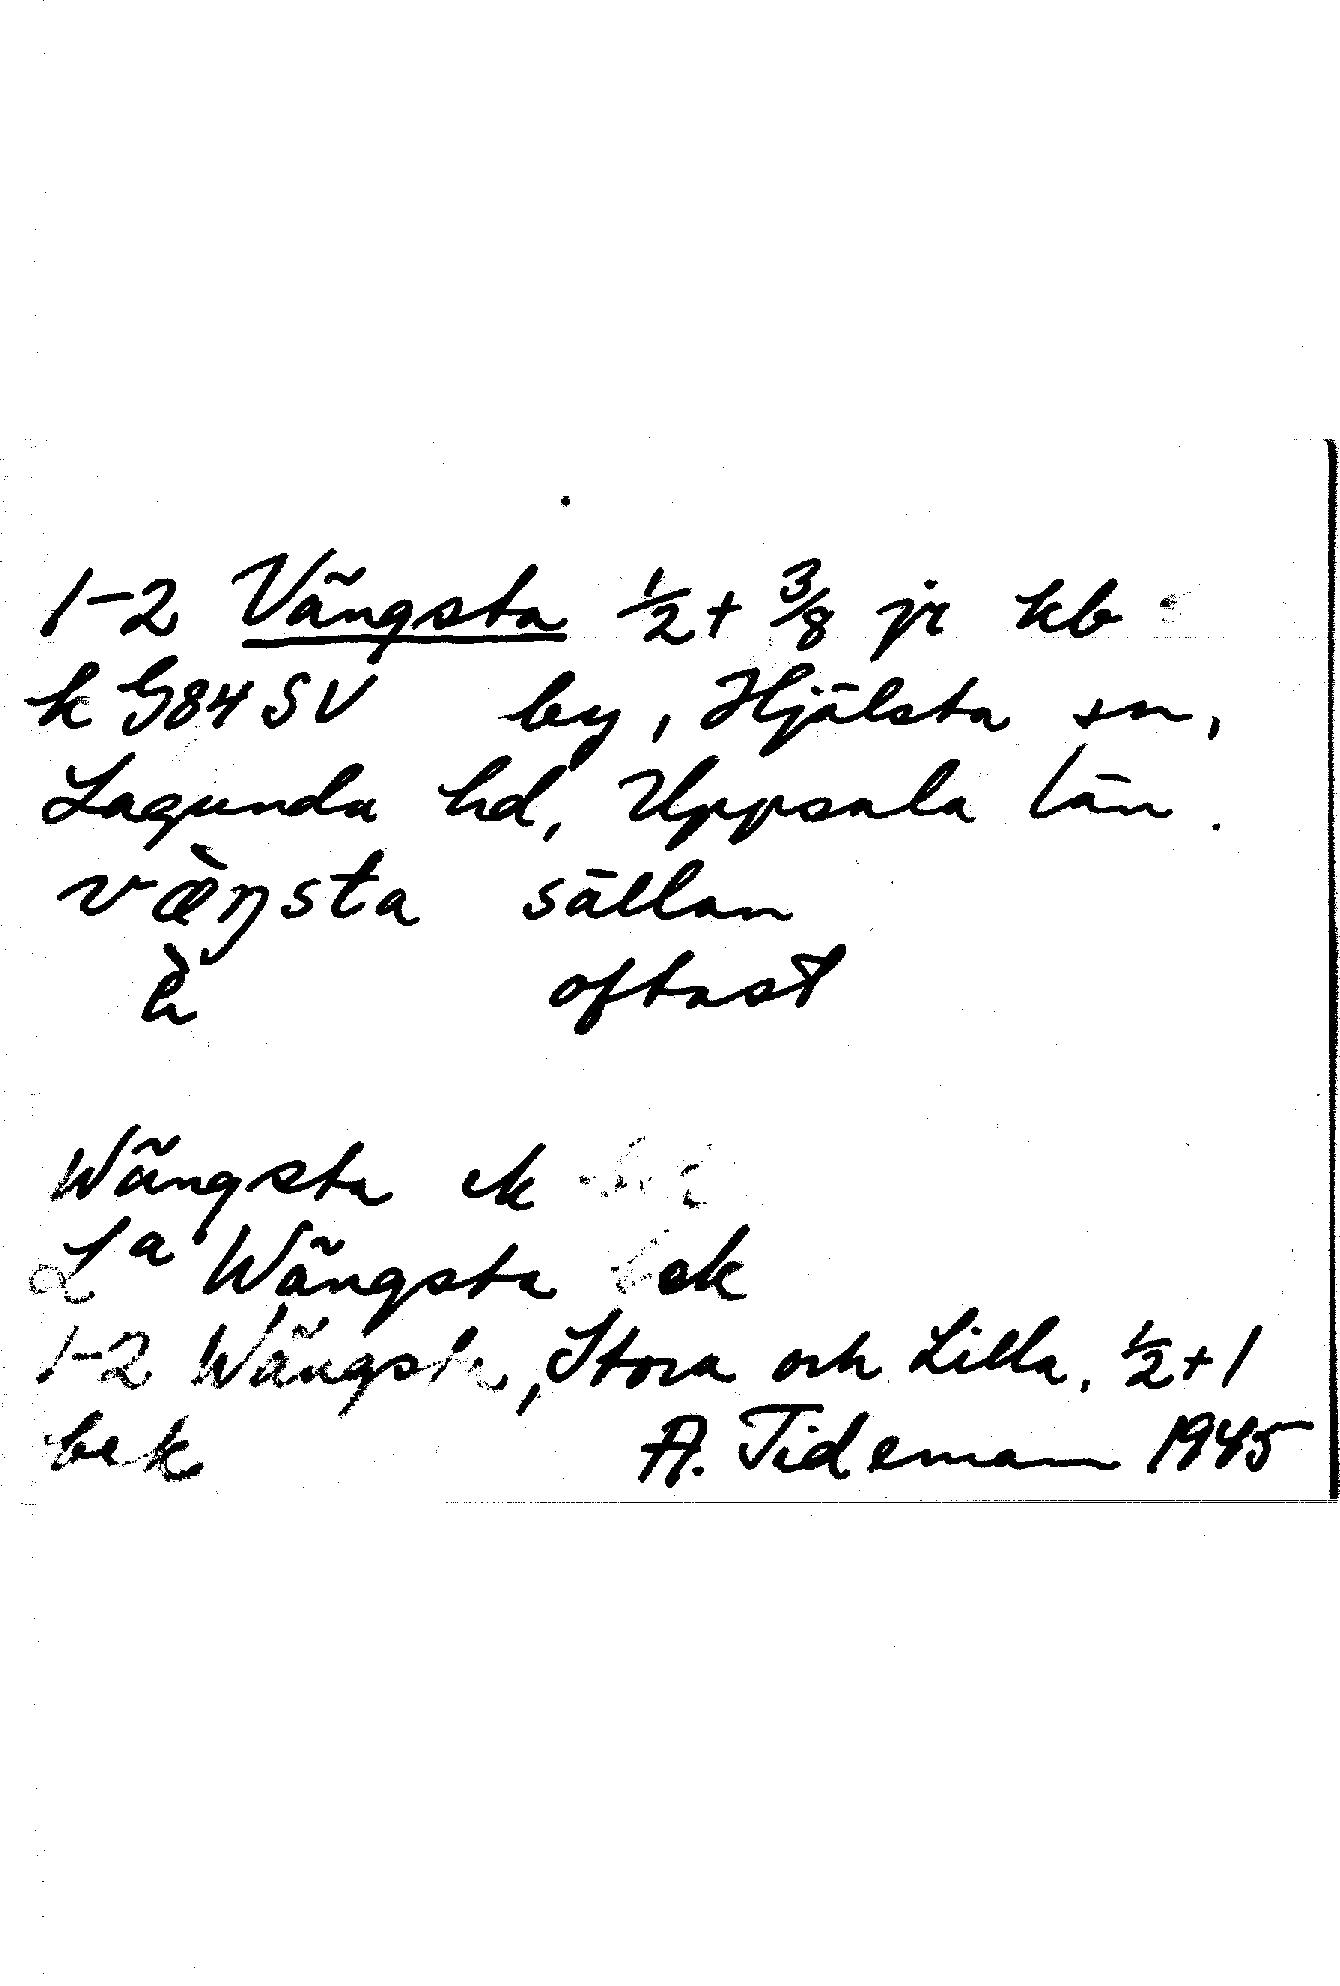 1-2 Vängsta 1/2 + 3/8 jr kb
k G84SV by, Hjälsta sn,
Lagunda hd, Uppsala län.
væ̀ŋsta sällan
ὲ oftast
Wängsta ek
La Wängsta ek
1-2 Wängsta, Stora och Lilla, 1/2+1
bek A. Tideman 1945